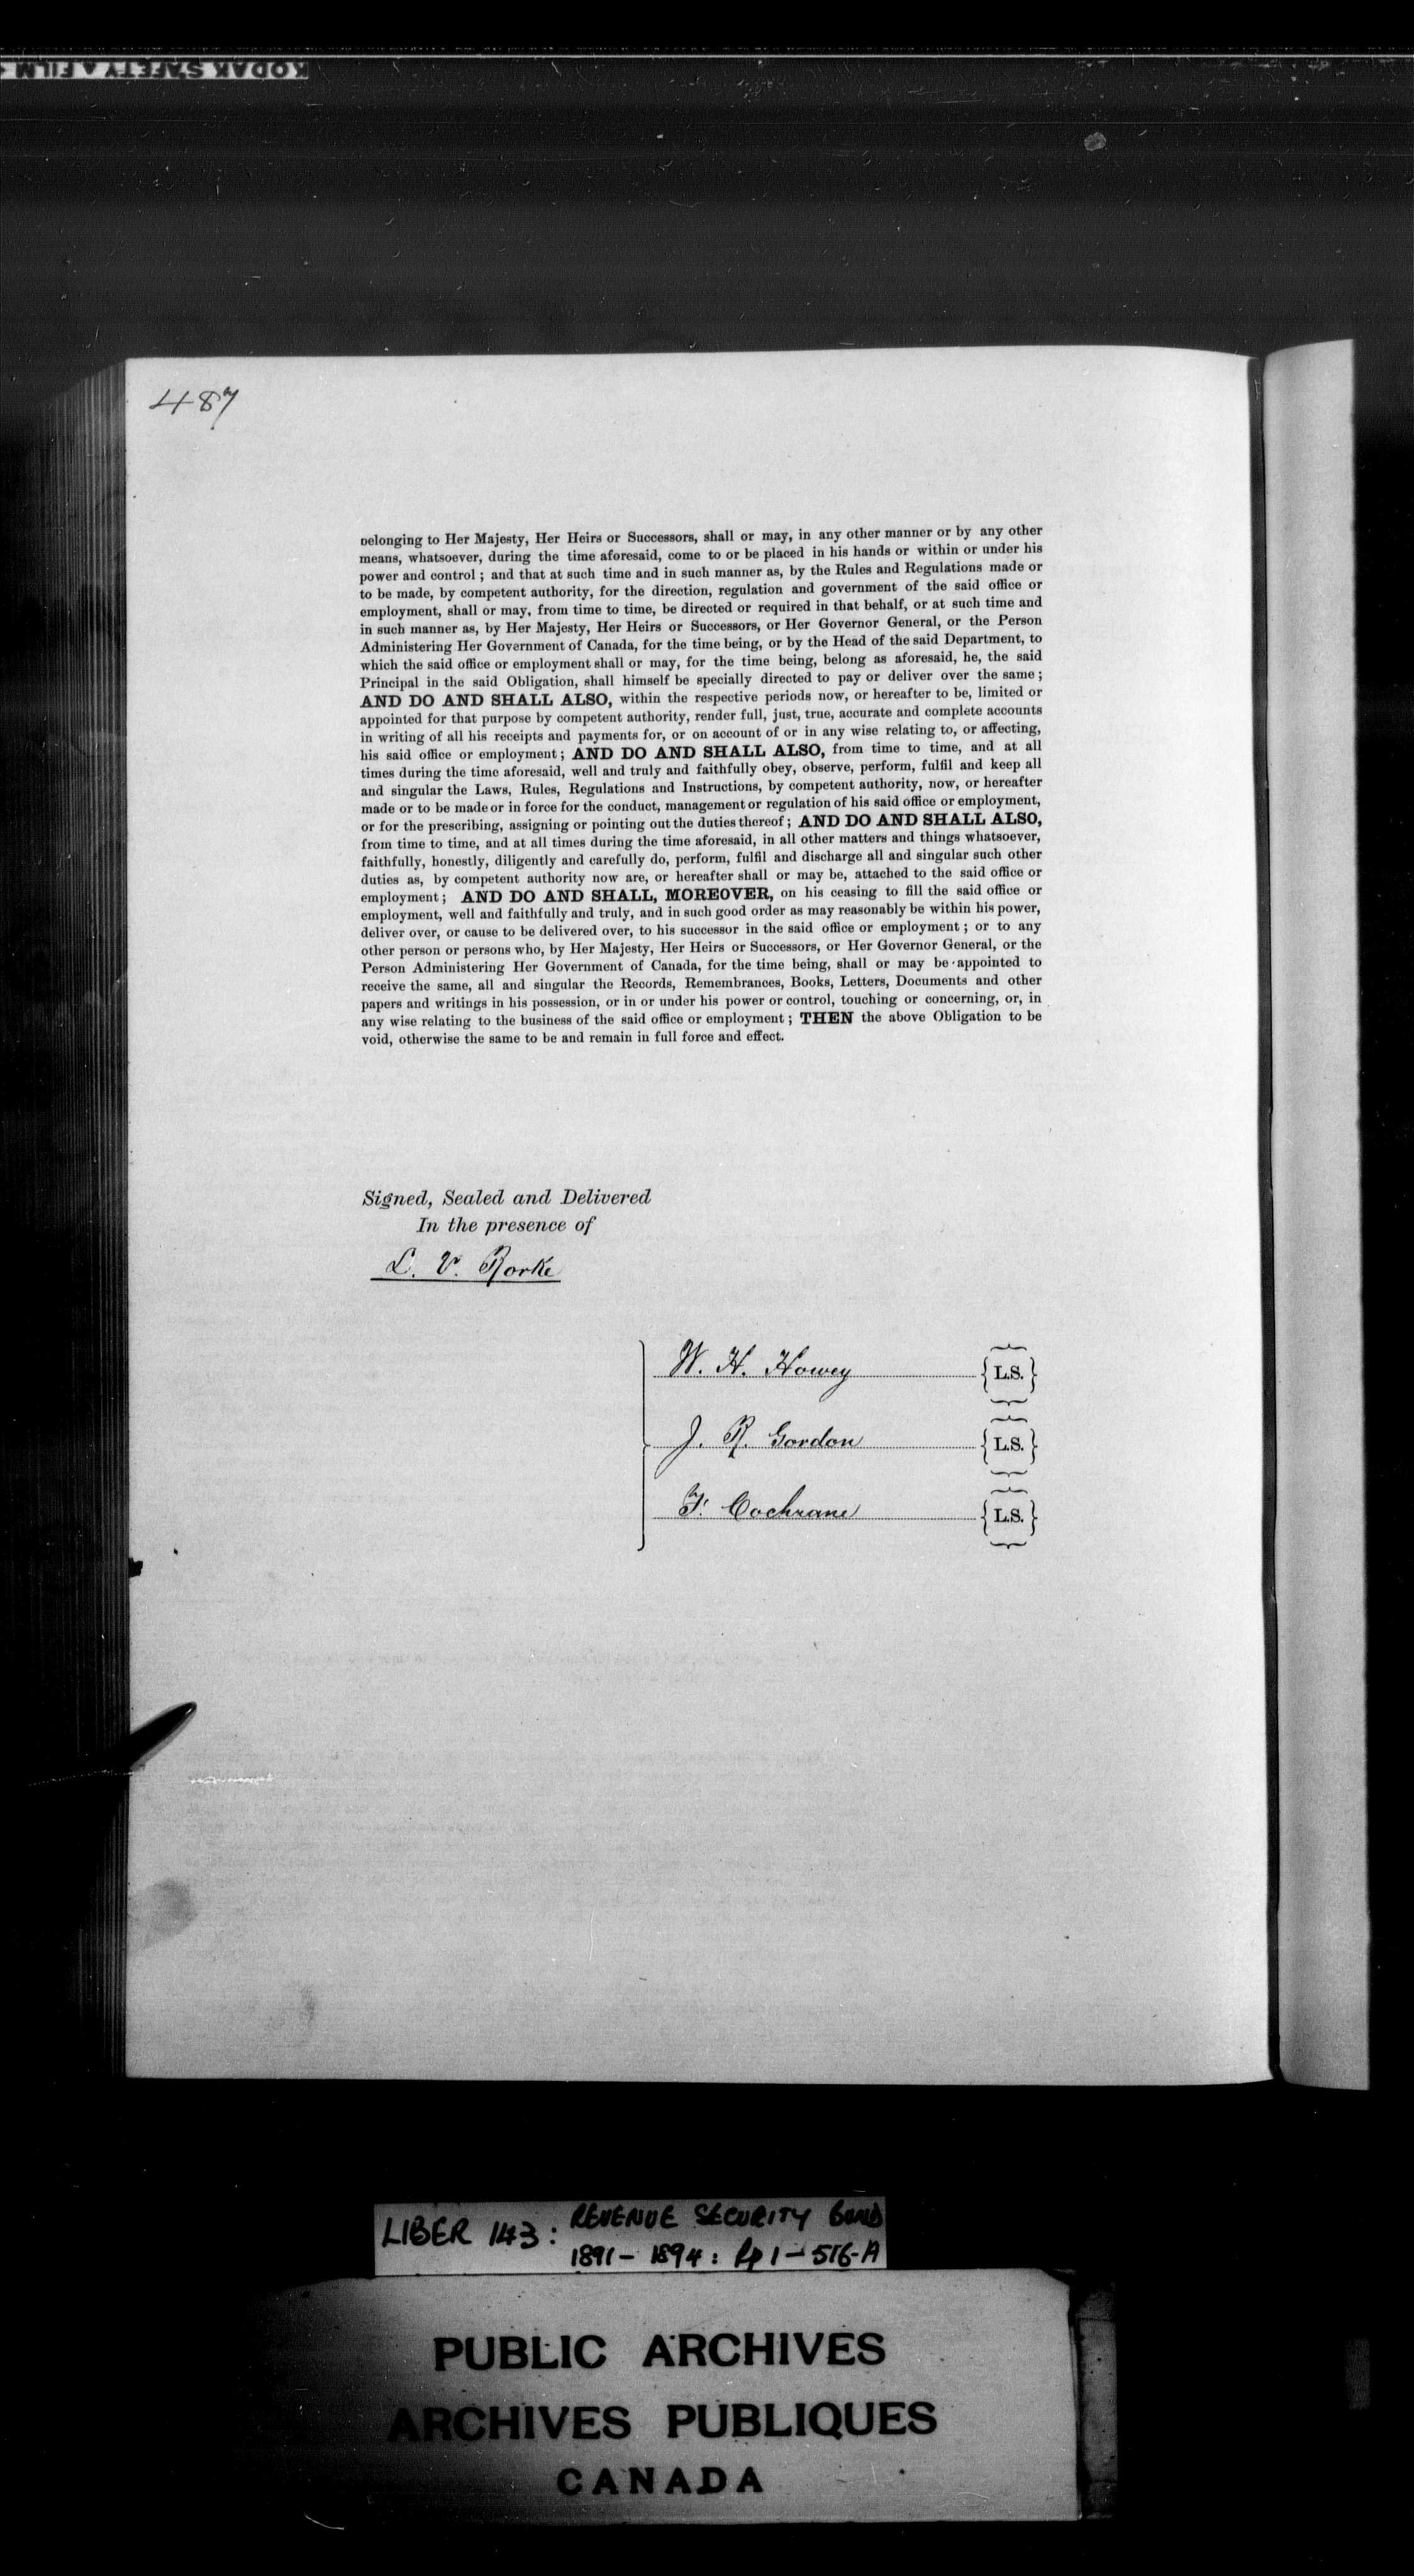 KODAK SAFETY FILM
487
belonging to Her Majesty, Her Heirs or Successors, shall or may, in any other manner or by any other
means, whatsoever, during the time aforesaid, come to or be placed in his hands or within or under his
power and control ; and that at such time and in such manner as, by the Rules and Regulations made or
to be made, by competent authority, for the direction, regulation and government of the said office or
employment, shall or may, from time to time, be directed or required in that behalf, or at such time and
in such manner as, by Her Majesty, Her Heirs or Successors, or Her Governor General, or the Person
Administering Her Government of Canada, for the time being, or by the Head of the said Department, to
which the said office or employment shall or may, for the time being, belong as aforesaid, he, the said
Principal in the said Obligation, shall himself be specially directed to pay or deliver over the same ;
AND DO AND SHALL ALSO, within the respective periods now, or hereafter to be, limited or
appointed for that purpose by competent authority, render full, just, true, accurate and complete accounts
in writing of all his receipts and payments for, or on account of or in any wise relating to, or affecting,
his said office or employment ; AND DO AND SHALL ALSO, from time to time, and at all
times during the time aforesaid, well and truly and faithfully obey, observe, perform, fulfil and keep all
and singular the Laws, Rules, Regulations and Instructions, by competent authority, now, or hereafter
made or to be made or in force for the conduct, management or regulation of his said office or employment,
or for the prescribing, assigning or pointing out the duties thereof ; AND DO AND SHALL ALSO,
from time to time, and at all times during the time aforesaid, in all other matters and things whatsoever,
faithfully, honestly, diligently and carefully do, perform, fulfil and discharge all and singular such other
duties as, by competent authority now are, or hereafter shall or may be, attached to the said office or
employment ; AND DO AND SHALL, MOREOVER, on his ceasing to fill the said office or
employment, well and faithfully and truly, and in such good order as may reasonably be within his power,
deliver over, or cause to be delivered over, to his successor in the said office or employment ; or to any
other person or persons who, by Her Majesty, Her Heirs or Successors, or Her Governor General, or the
Person Administering Her Government of Canada, for the time being, shall or may be appointed to
receive the same, all and singular the Records, Remembrances, Books, Letters, Documents and other
papers and writings in his possession, or in or under his power or control, touching or concerning, or, in
any wise relating to the business of the said office or employment ; THEN the above Obligation to be
void, otherwise the same to be and remain in full force and effect.
Signed, Sealed and Delivered
In the presence of
L. V. Rorke
W. H. Howey {L.S.}
J. R. Gordon {L.S.}
F. Cochrane {L.S.}
LIBER 143: REVENUE SECURITY BOND
1891 - 1894: Pp 1 - 516-A
PUBLIC ARCHIVES
ARCHIVES PUBLIQUES
CANADA